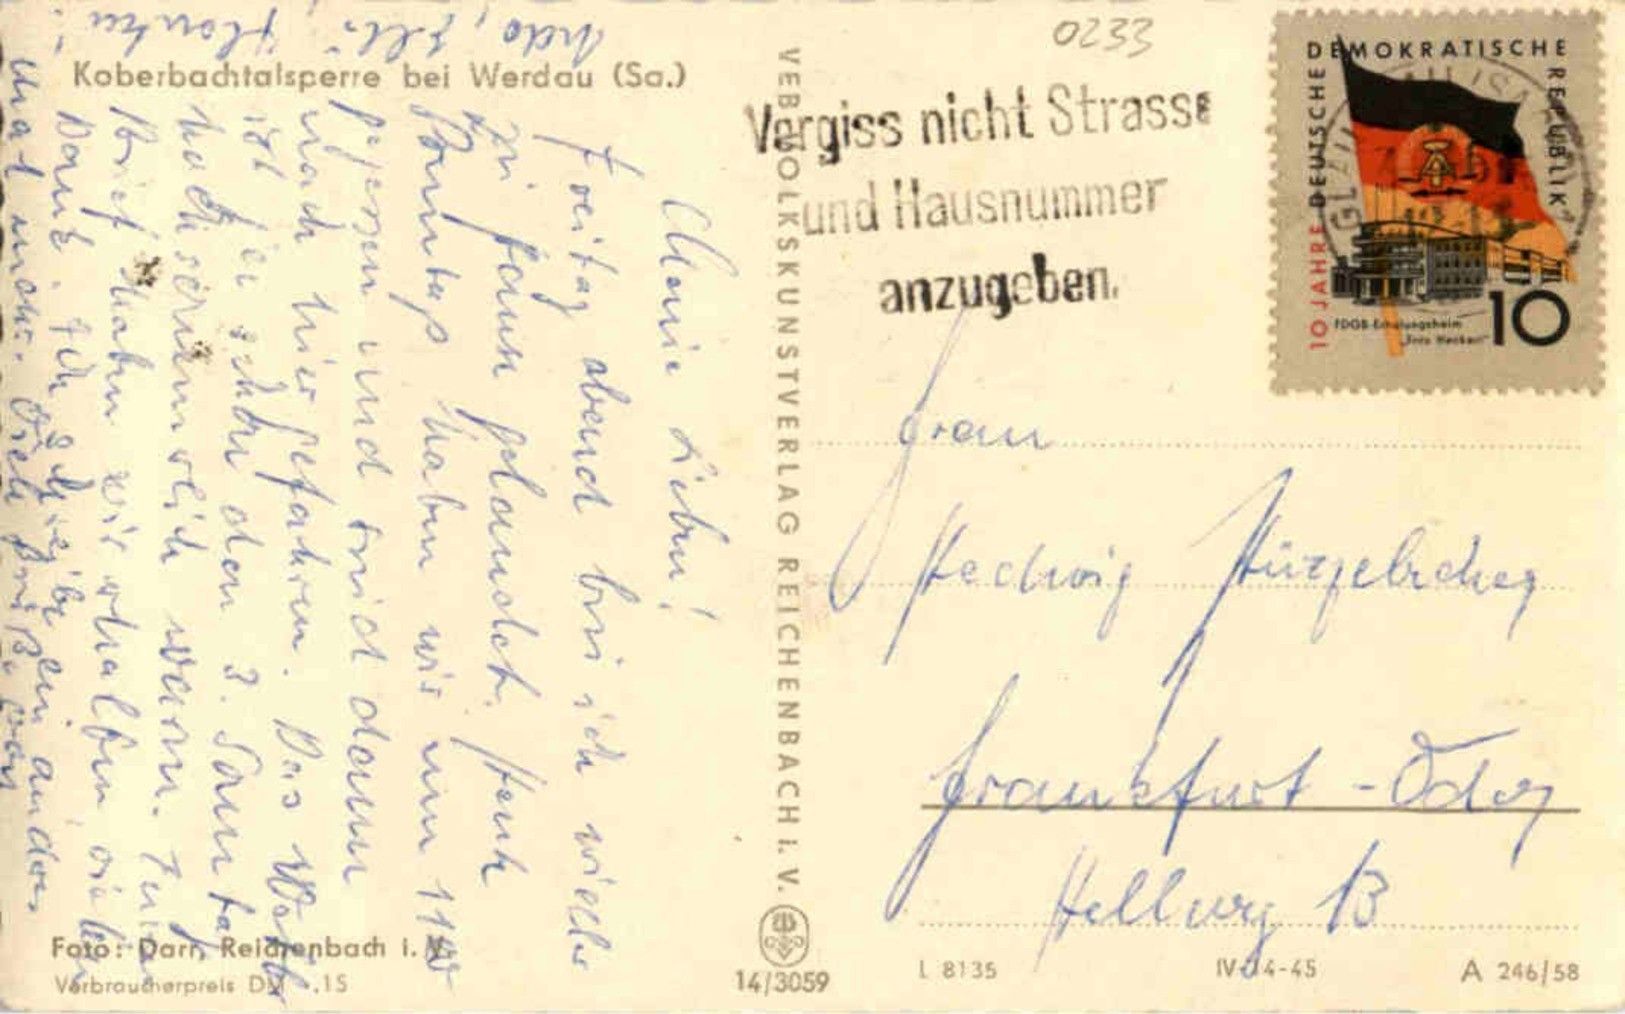 Koberbachtalsperre bei Werdau (Sa.)
Meine Lieben!
Freitag abend bin ich wieder
zu Hause gelandet. Heute
Sonntag haben wir um 11°°
gegessen und sind dann
nach hier gefahren. Das Wetter
ist ja schön der 3. Sonntag
nacheinander warm.
Brief haben wir erhalten, vielen
Dank. Ich ein ander
mal mehr. Viele Grüße von
Foto: Darr, Reichenbach i. V.
Verbraucherpreis DM -.15
VEB VOLKSKUNSTVERLAG REICHENBACH I. V.
14/3059
0233
Vergiss nicht Strasse
und Hausnummer
anzugeben.
10 JAHRE DEUTSCHE
DEMOKRATISCHE
REPUBLIK
FDGB-Erholungsheim
„Fritz Heckert"
10
Frau
Hedwig
Frankfurt-Oder
Hellweg 13
L 8135
IV-14-45
A 246/58